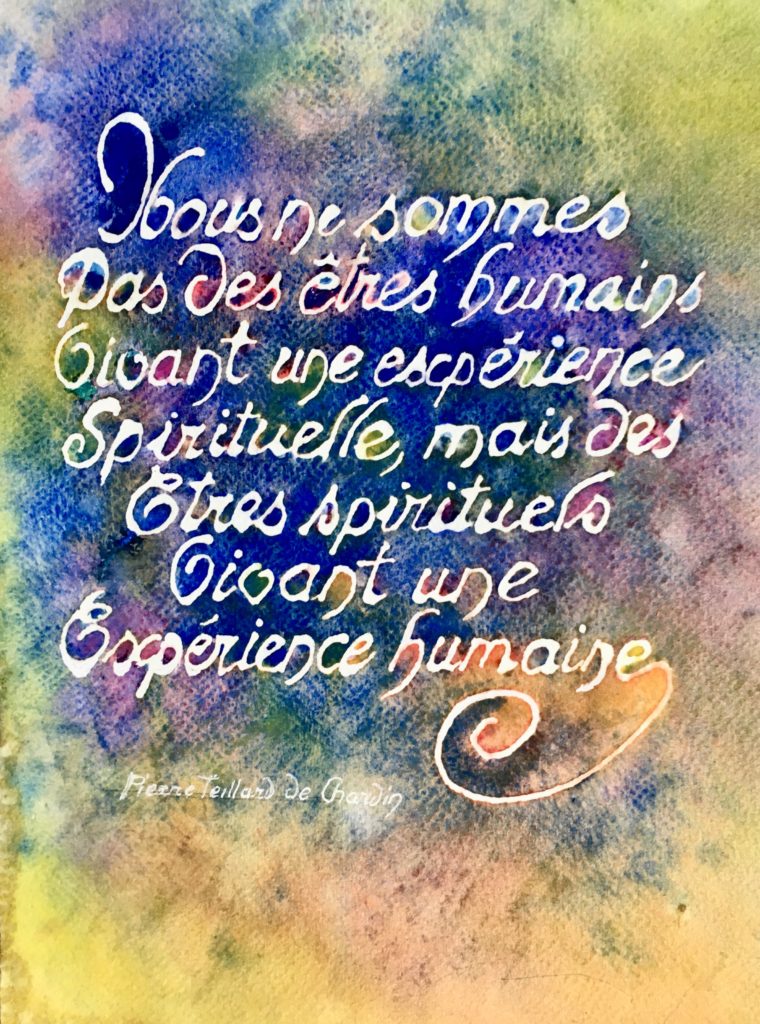 Nous ne sommes
pas des êtres humains
Vivant une expérience
Spirituelle, mais des
Etres spirituels
Vivant une
Expérience humaine
Pierre Teillard de Chardin